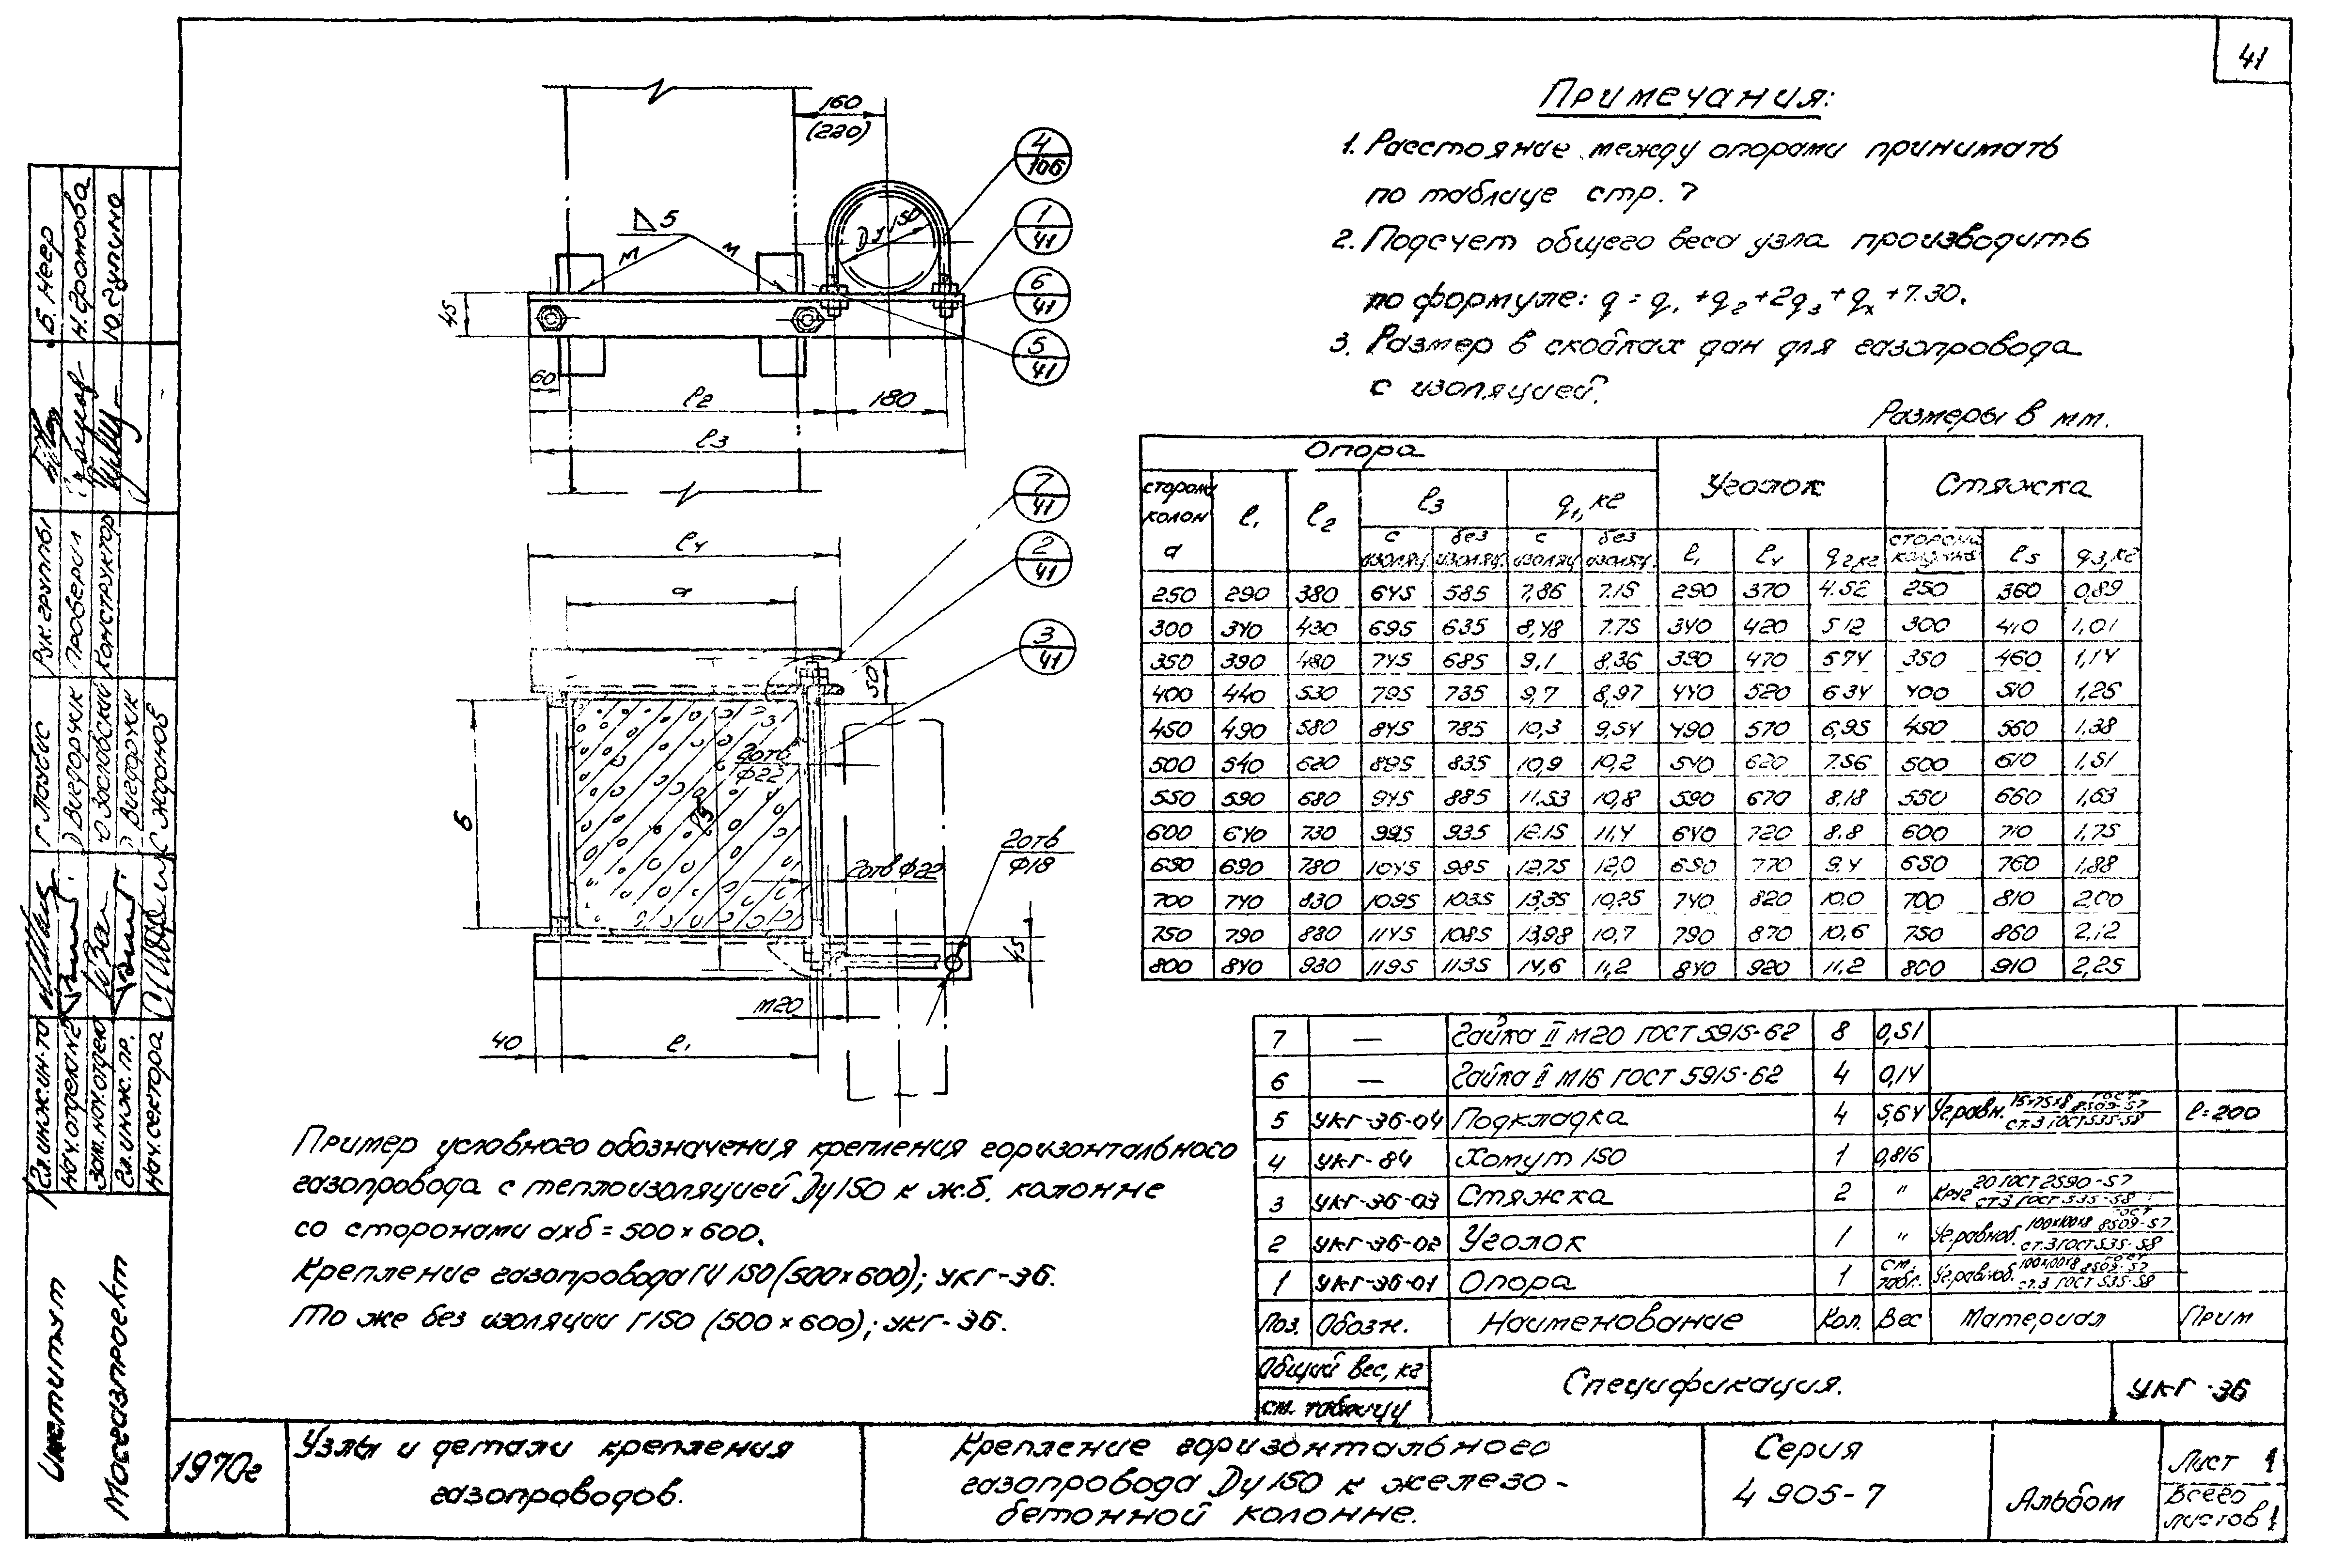 41
Примечания:
1. Расстояние между опорами принимать
по таблице стр. 7
2. Подсчет общего веса узла производить
по формуле: q = q₁ + q₂ + 2q₃ + qх + 7.30.
3. Размер в скобках дан для газопровода
с изоляцией.
Размеры в мм.
160
(220)
4
106
1
41
6
41
5
41
5
М
М
Ду 150
45
60
ℓ2
180
ℓ3
7
41
2
41
3
41
ℓ4
а
50
2отв
Ф22
б
ℓ5
2отв Ф22
2отв
Ф18
45
М20
40
ℓ1
Опора
Уголок
Стяжка
сторона колон а
ℓ1
ℓ2
ℓ3
q1, кг
с изоляц
без изоляц.
с изоляц
без изоляц.
ℓ1
ℓ4
q2, кг
сторона колонны
ℓ5
q3, кг
250 290 380 645 585 7,86 7.15 290 370 4.52 250 360 0,89
300 340 430 695 635 8,48 7.75 340 420 5 12 300 410 1,01
350 390 480 745 685 9,1 8,36 390 470 5 74 350 460 1,14
400 440 530 795 735 9,7 8,97 440 520 6 34 400 510 1,25
450 490 580 845 785 10,3 9,54 490 570 6,95 450 560 1.38
500 540 630 895 835 10,9 10,2 540 620 7.56 500 610 1,51
550 590 680 945 885 11.53 10,8 590 670 8,18 550 660 1,63
600 640 730 995 935 12.15 11,4 640 720 8.8 600 710 1,75
650 690 780 1045 985 12,75 12,0 690 770 9.4 650 760 1,88
700 740 830 1095 1035 13,35 10,25 740 820 10.0 700 810 2,00
750 790 880 1145 1085 13,98 10,7 790 870 10,6 750 860 2,12
800 840 930 1195 1135 14,6 11,2 840 920 11,2 800 910 2,25
7 — Гайка II М20 ГОСТ 5915-62 8 0,51
6 — Гайка II М16 ГОСТ 5915-62 4 0,14
5 УКГ-36-04 Подкладка 4 5,64 Уг.равн. 75×75×8 ГОСТ 8509-57 ст.3 ГОСТ 535-58 ℓ=200
4 УКГ-84 Хомут 150 1 0,816
3 УКГ-36-03 Стяжка 2 " Круг 20 ГОСТ 2590-57 ст3 ГОСТ 535-58
2 УКГ-36-02 Уголок 1 " Уг.равноб. 100×100×8 ГОСТ 8509-57 ст.3 ГОСТ 535-58
1 УКГ-36-01 Опора 1 см. табл. Уг.равноб. 100×100×8 ГОСТ 8509-57 ст.3 ГОСТ 535-58
Поз. Обозн. Наименование Кол. Вес Материал Прим
Общий вес, кг
см. таблицу
Спецификация.
УКГ-36
Пример условного обозначения крепления горизонтального
газопровода с теплоизоляцией Ду 150 к ж.б. колонне
со сторонами ахб = 500×600.
Крепление газопровода ГИ 150 (500×600); УКГ-36.
То же без изоляции Г150 (500×600); УКГ-36.
1970г
Узлы и детали крепления
газопроводов.
Крепление горизонтального
газопровода Ду 150 к железо-
бетонной колонне.
Серия
4 905-7
Альбом
Лист 1
Всего
листов 1
Институт
Мосгазпроект
Гл.инж.ин-та
Нач.отдела №2
Зам.нач.отдела
Гл.инж.пр.
Нач.сектора
Выгорчик
Заславский
Выгорчик
С Жданов
Рук.группы
Проверил
Конструктор
Б. Неер
Н.Громова